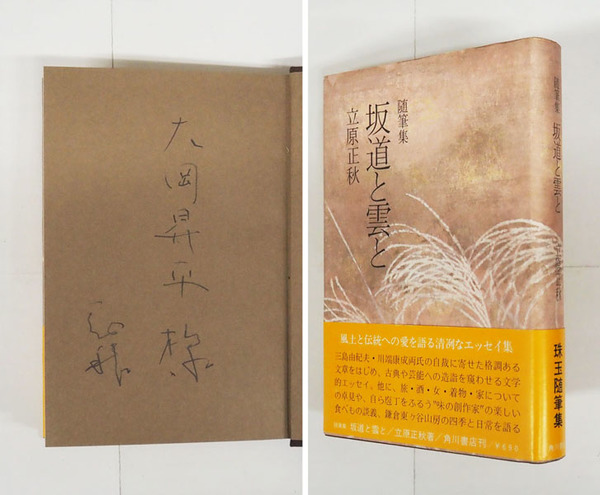 大岡昇平様
随筆集
坂道と雲と
立原正秋
風土と伝統への愛を語る清冽なエッセイ集
三島由紀夫・川端康成両氏の自裁に寄せた格調ある
文章をはじめ、古典や芸能への造詣を窺わせる文学
的エッセイ、他に、旅・酒・女・着物・家について
の卓見や、自ら庖丁をふるう"味の創作家"の楽しい
食べもの談義、鎌倉東ヶ谷山房の四季と日常を語る
随筆集 坂道と雲と/立原正秋著/角川書店刊/¥690
随筆集
坂道と雲と
立原正秋
珠玉随筆集
角川書店